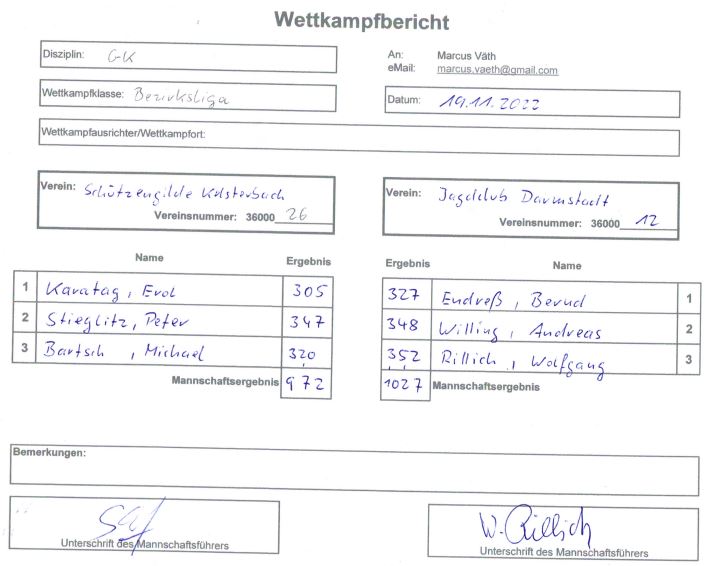 Wettkampfbericht
Disziplin: GK
An: Marcus Väth
eMail: marcus.vaeth@gmail.com
Wettkampfklasse: Bezirksliga
Datum: 19.11.2022
Wettkampfausrichter/Wettkampfort:
Verein: Schützengilde Kelsterbach
Vereinsnummer: 36000 26
Verein: Jagdclub Darmstadt
Vereinsnummer: 36000 12
Name Ergebnis
1 Karatag, Erol 305
2 Stieglitz, Peter 347
3 Bartsch, Michael 320
Mannschaftsergebnis 972
Ergebnis Name
327 Endreß, Bernd 1
348 Willing, Andreas 2
352 Rillich, Wolfgang 3
1027 Mannschaftsergebnis
Bemerkungen:
Unterschrift des Mannschaftsführers
W. Rillich
Unterschrift des Mannschaftsführers